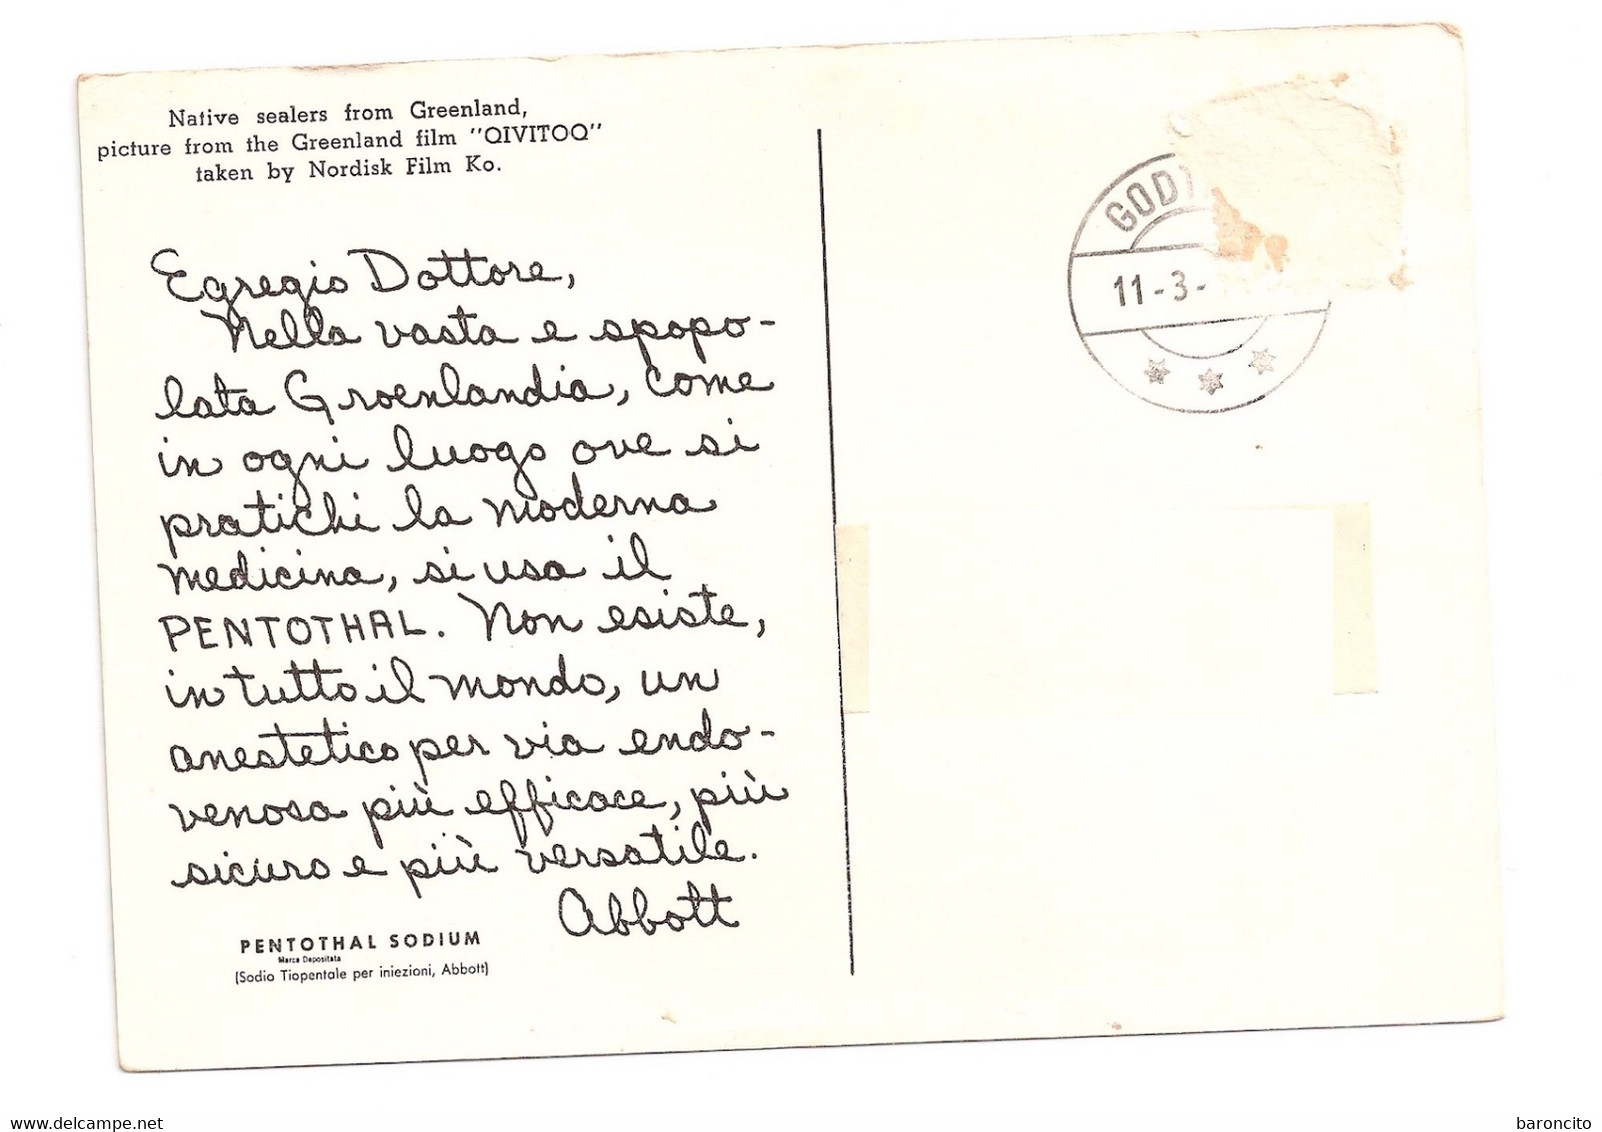 Native sealers from Greenland,
picture from the Greenland film "QIVITOQ"
taken by Nordisk Film Ko.
Egregio Dottore,
Nella vasta e spopo-
lata Groenlandia, come
in ogni luogo ove si
pratichi la moderna
medicina, si usa il
PENTOTHAL. Non esiste,
in tutto il mondo, un
anestetico per via endo-
venosa più efficace, più
sicuro e più versatile.
Abbott
PENTOTHAL SODIUM
Marca Depositata
(Sodio Tiopentale per iniezioni, Abbott)
GODT
11-3-
www.delcampe.net
baroncito